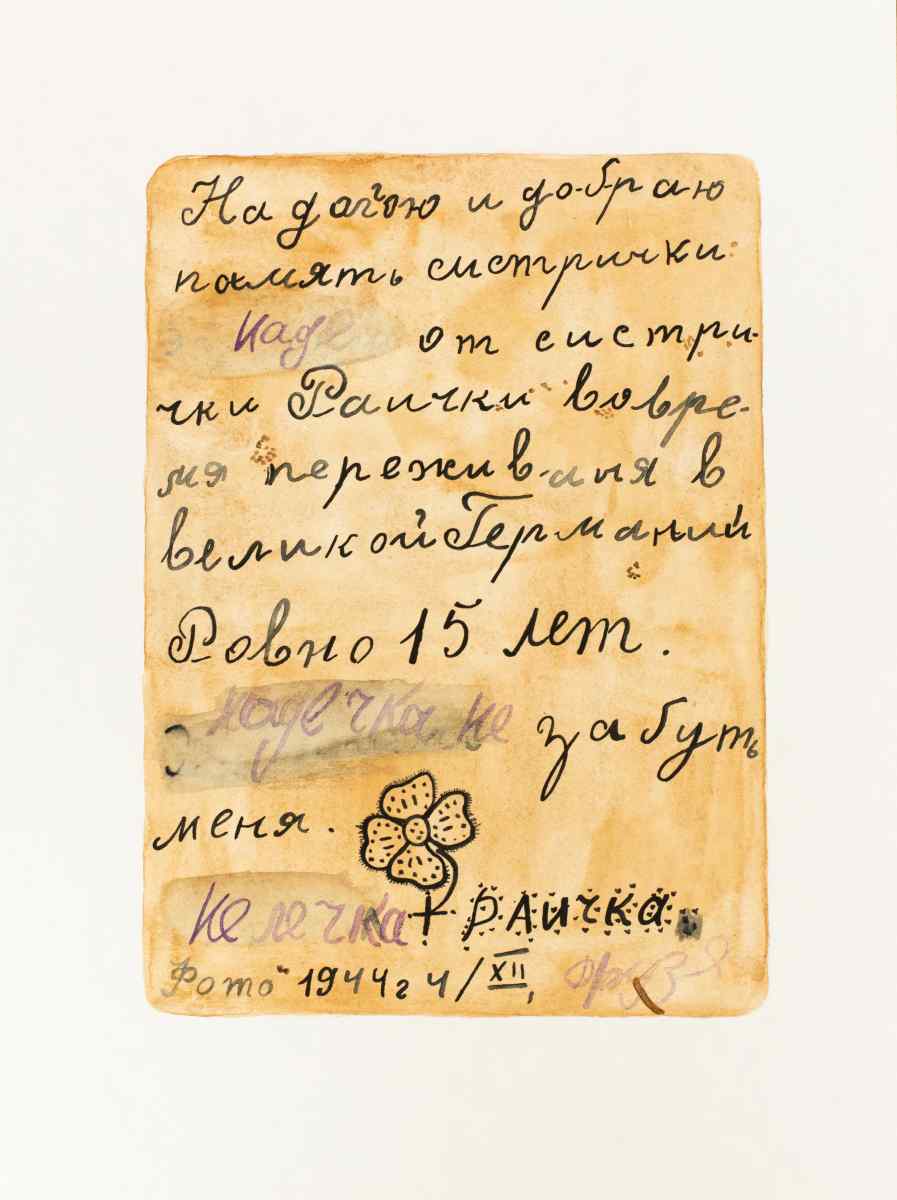 На долгою и добраю
память систрички
Наде от систри-
чки Раички вовре-
мя переживаня в
великой Германий
Ровно 15 лет.
надечка не забуть
меня.
Не лечка + РАИЧКА
Фото 1944г 4/XII,